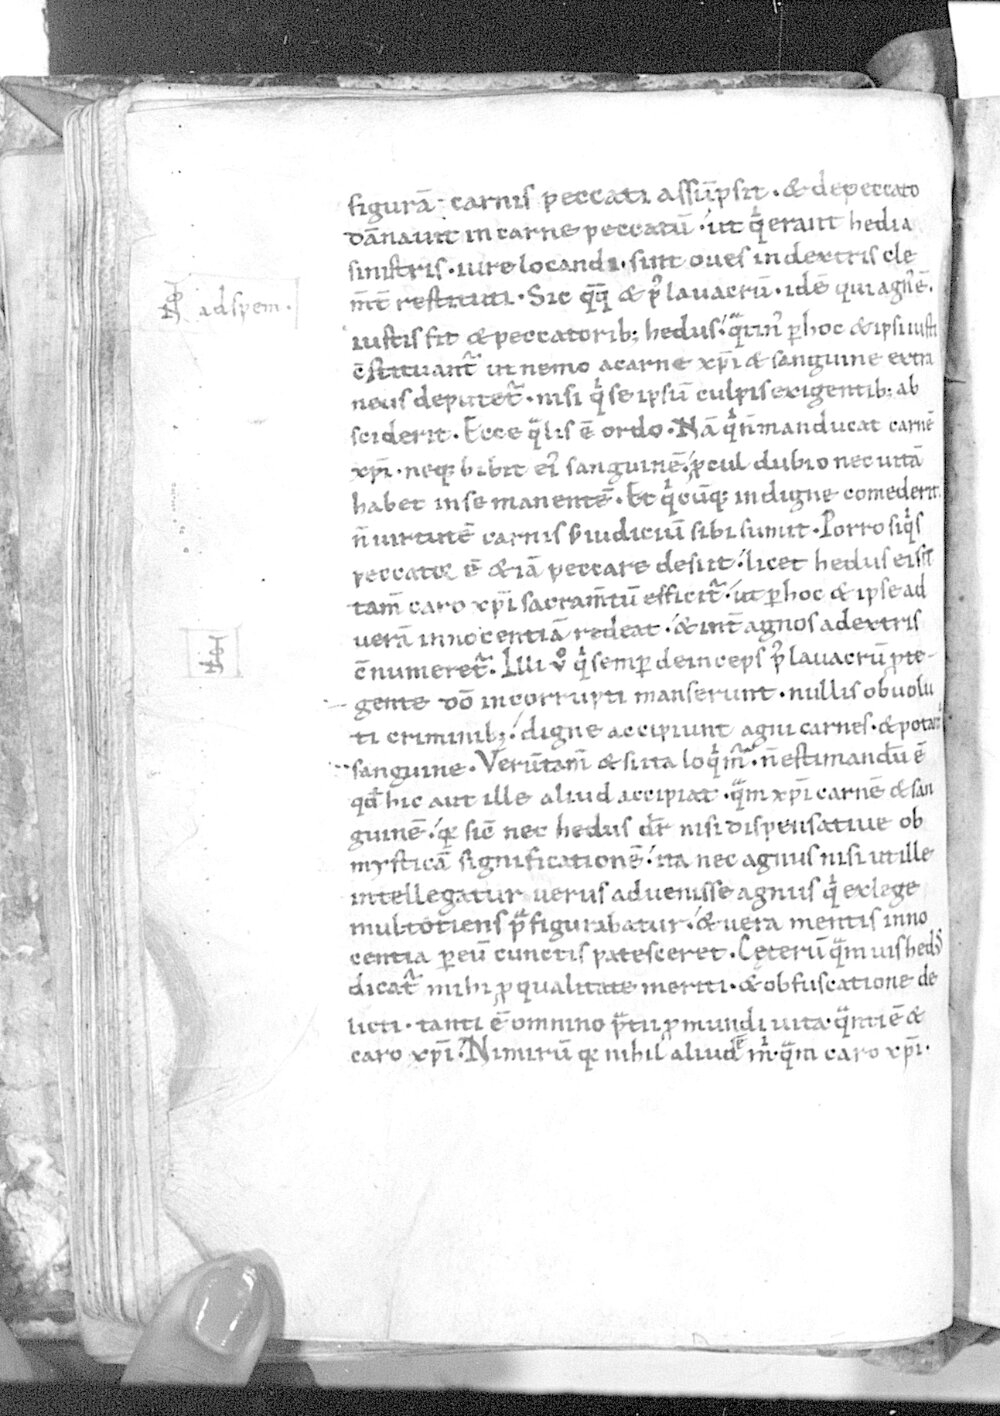 figurā carnis peccati assūpsit · & de peccato
dānauit in carne peccatū · ut q̇ erant hedi a
sinistris · iure locandi · sint oues in dextris cle
m̄t restituti · Sic qq̄ & p̓ lauacrū · idē qui agn᷒ ē ·
ad spem ·
iustis fit & peccatorib; hedus · q̄tin᷒ p̱ hoc & ipsi iusti
c̄stituant᷑ ut nemo a carne xp̄i & sanguine extra
neus deputet᷑ · nisi q̇ se ipsū culpis exigentib; ab
sciderit · Ecce q̄lis ē ordo · Nā q̇ n̄ manducat carnē
xp̄i · neq; bibit ei᷒ sanguinē · ꝓcul dubio nec uitā
habet in se manentē · Et q̇cūq; indigne comederit ·
n̄ uirtutē carnis s; iudiciū sibi sumit · Porro siq̇s
peccator ē & iā peccare desiit · licet hedus ei sit
tam̄ caro xp̄i sacram̄tū efficit᷑ · ut p̱ hoc & ipse ad
uerā innocentiā redeat · & int̄ agnos a dextris
c̄numeret᷑ · Illi v̊ q̇ semp̱ deinceps p̓ lauacrū ꝓte-
gente dō incorrupti manserunt · nullis obuolu
ti criminib; · digne accipiunt agni carnes · & potant᷑
sanguine · Verūtam̄ & si ita loq̇m᷑ · n̄ estimandū ē
qđ hic aut ille aliud accipiat · q̄m xp̄i carnē & san
guinē · q; sic̄ nec hedus dr̄ nisi dispensatiue ob
mysticā significationē · ita nec agnus nisi ut ille
intellegatur uerus aduenisse agnus q̇ ex lege
multotiens p̄figurabatur · & uera mentis inno
centia p̱ eū cunctis patesceret · Cęterū q̄muis hed᷒
dicat᷑ mihi ꝓ qualitate meriti · & obfuscatione de
licti · tanti ē omnino p̄tii ꝓ mundi uita q̄nti ē &
caro xp̄i · Nimirū q; nihil aliud ē m̓ q̄m caro xp̄i ·